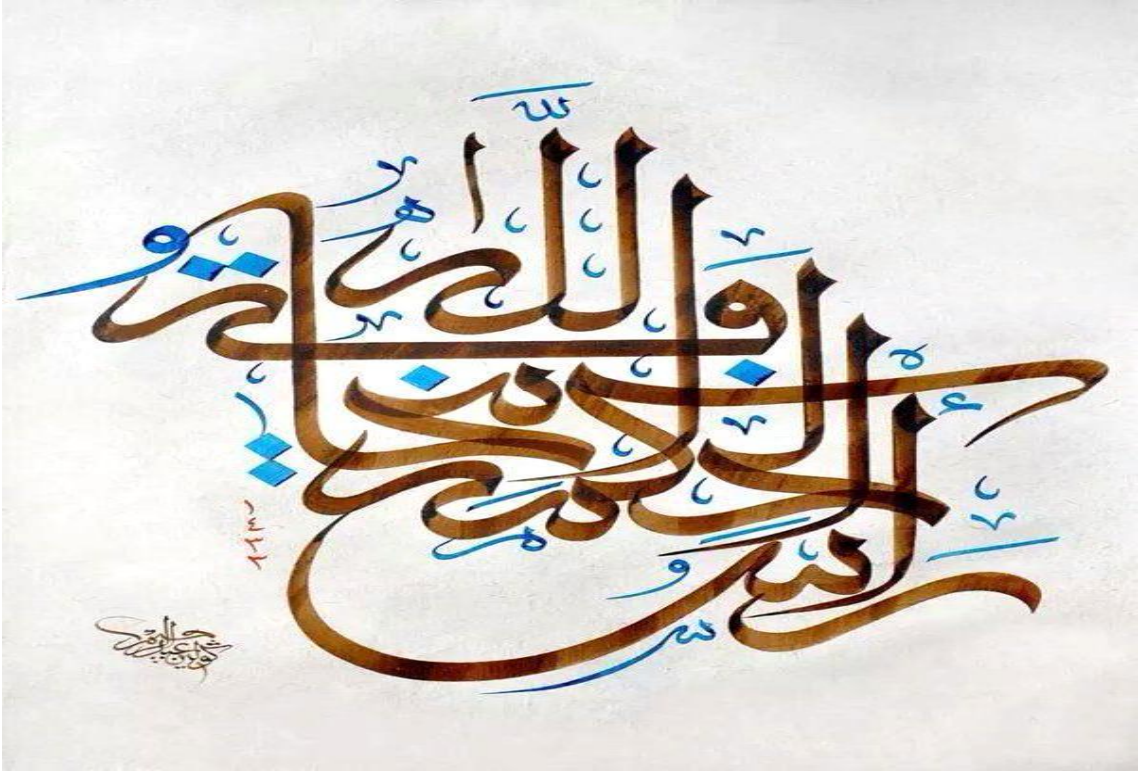 رَأْسُ الحكمة مخافة اللّه